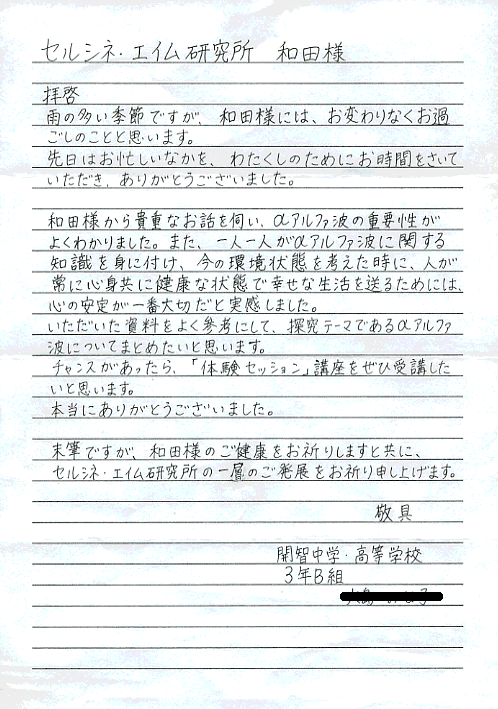 セルシネ・エイム研究所 和田様
拝啓
雨の多い季節ですが、和田様には、お変わりなくお過
ごしのことと思います。
先日はお忙しいなかを、わたくしのためにお時間をさいて
いただき、ありがとうございました。
和田様から貴重なお話を伺い、αアルファ波の重要性が
よくわかりました。また、一人一人がαアルファ波に関する
知識を身に付け、今の環境状態を考えた時に、人が
常に心身共に健康な状態で幸せな生活を送るためには、
心の安定が一番大切だと実感しました。
いただいた資料をよく参考にして、探究テーマであるαアルファ
波についてまとめたいと思います。
チャンスがあったら、「体験セッション」講座をぜひ受講した
いと思います。
本当にありがとうございました。
末筆ですが、和田様のご健康をお祈りしますと共に、
セルシネ・エイム研究所の一層のご発展をお祈り申し上げます。
敬具
開智中学・高等学校
3年B組